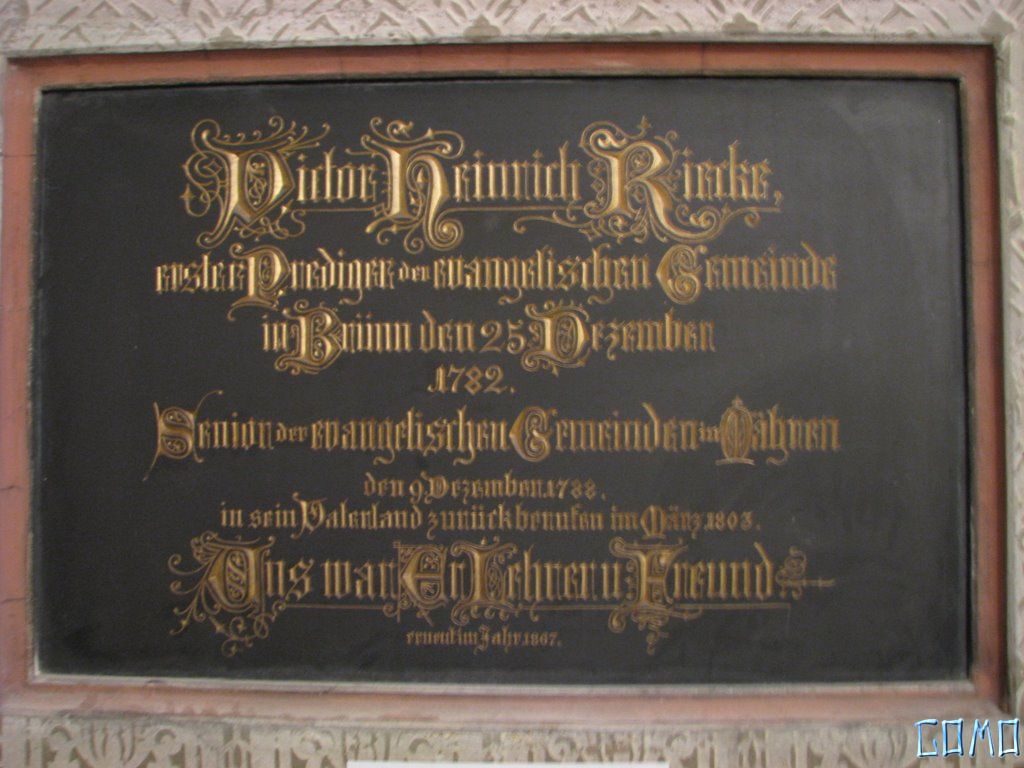 Victor Heinrich Riecke,
erster Prediger der evangelischen Gemeinde
in Brünn den 25 Dezember
1782.
Senior der evangelischen Gemeinden in Mähren
den 9 Dezember 1788.
in sein Vaterland zurückberufen im März 1803.
Uns war Er Lehrer u: Freund
erneut im Jahr 1867.
COMO